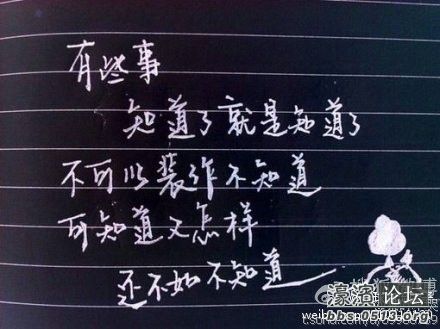 有些事
知道了就是知道了
不可以装作不知道
可知道又怎样
还不如不知道
论坛